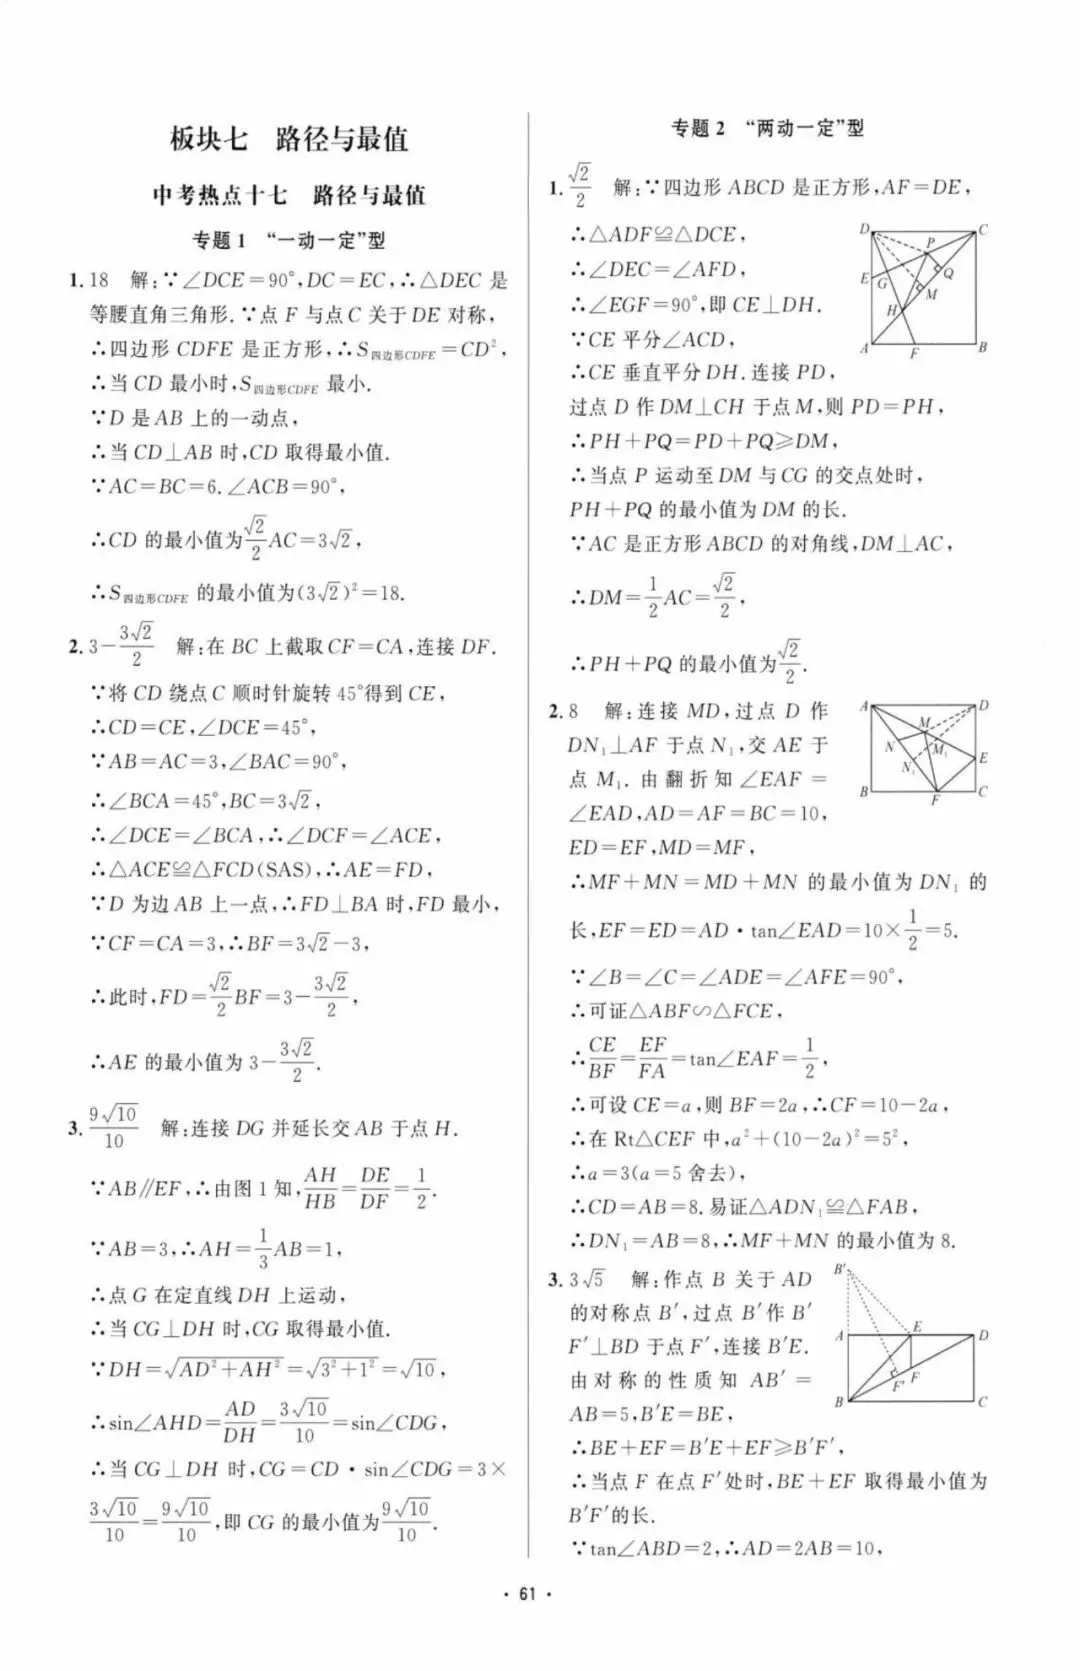 板块七 路径与最值
中考热点十七 路径与最值
专题1 “一动一定”型
1. 18 解:∵∠DCE=90°,DC=EC,∴△DEC 是
等腰直角三角形.∵点 F 与点 C 关于 DE 对称,
∴四边形 CDFE 是正方形,∴S四边形CDFE=CD²,
∴当 CD 最小时,S四边形CDFE 最小.
∵D 是 AB 上的一动点,
∴当 CD⊥AB 时,CD 取得最小值.
∵AC=BC=6.∠ACB=90°,
∴CD 的最小值为√2/2 AC=3√2,
∴S四边形CDFE 的最小值为(3√2)²=18.
2. 3-3√2/2 解:在 BC 上截取 CF=CA,连接 DF.
∵将 CD 绕点 C 顺时针旋转 45°得到 CE,
∴CD=CE,∠DCE=45°,
∵AB=AC=3,∠BAC=90°,
∴∠BCA=45°,BC=3√2,
∴∠DCE=∠BCA,∴∠DCF=∠ACE,
∴△ACE≌△FCD(SAS),∴AE=FD,
∵D 为边 AB 上一点,∴FD⊥BA 时,FD 最小,
∵CF=CA=3,∴BF=3√2-3,
∴此时,FD=√2/2 BF=3-3√2/2,
∴AE 的最小值为 3-3√2/2.
3. 9√10/10 解:连接 DG 并延长交 AB 于点 H.
∵AB∥EF,∴由图 1 知,AH/HB=DE/DF=1/2.
∵AB=3,∴AH=1/3 AB=1,
∴点 G 在定直线 DH 上运动,
∴当 CG⊥DH 时,CG 取得最小值.
∵DH=√(AD²+AH²)=√(3²+1²)=√10,
∴sin∠AHD=AD/DH=3√10/10=sin∠CDG,
∴当 CG⊥DH 时,CG=CD·sin∠CDG=3×
3√10/10=9√10/10,即 CG 的最小值为9√10/10.
专题2 “两动一定”型
1. √2/2 解:∵四边形 ABCD 是正方形,AF=DE,
∴△ADF≌△DCE,
∴∠DEC=∠AFD,
∴∠EGF=90°,即 CE⊥DH.
∵CE 平分∠ACD,
∴CE 垂直平分 DH.连接 PD,
过点 D 作 DM⊥CH 于点 M,则 PD=PH,
∴PH+PQ=PD+PQ≥DM,
∴当点 P 运动至 DM 与 CG 的交点处时,
PH+PQ 的最小值为 DM 的长.
∵AC 是正方形 ABCD 的对角线,DM⊥AC,
∴DM=1/2 AC=√2/2,
∴PH+PQ 的最小值为√2/2.
D
C
P
E
G
Q
M
H
A
F
B
2. 8 解:连接 MD,过点 D 作
DN₁⊥AF 于点 N₁,交 AE 于
点 M₁. 由翻折知∠EAF=
∠EAD,AD=AF=BC=10,
ED=EF,MD=MF,
∴MF+MN=MD+MN 的最小值为 DN₁ 的
长,EF=ED=AD·tan∠EAD=10×1/2=5.
∵∠B=∠C=∠ADE=∠AFE=90°,
∴可证△ABF∽△FCE,
∴CE/BF=EF/FA=tan∠EAF=1/2,
∴可设 CE=a,则 BF=2a,∴CF=10-2a,
∴在 Rt△CEF 中,a²+(10-2a)²=5²,
∴a=3(a=5 舍去),
∴CD=AB=8.易证△ADN₁≌△FAB,
∴DN₁=AB=8,∴MF+MN 的最小值为 8.
A
D
M
N
M₁
E
N₁
B
F
C
3. 3√5 解:作点 B 关于 AD
的对称点 B′,过点 B′作 B′
F′⊥BD 于点 F′,连接 B′E.
由对称的性质知 AB′=
AB=5,B′E=BE,
∴BE+EF=B′E+EF≥B′F′,
∴当点 F 在点 F′处时,BE+EF 取得最小值为
B′F′的长.
∵tan∠ABD=2,∴AD=2AB=10,
B′
A
E
D
F
F′
B
C
·61·